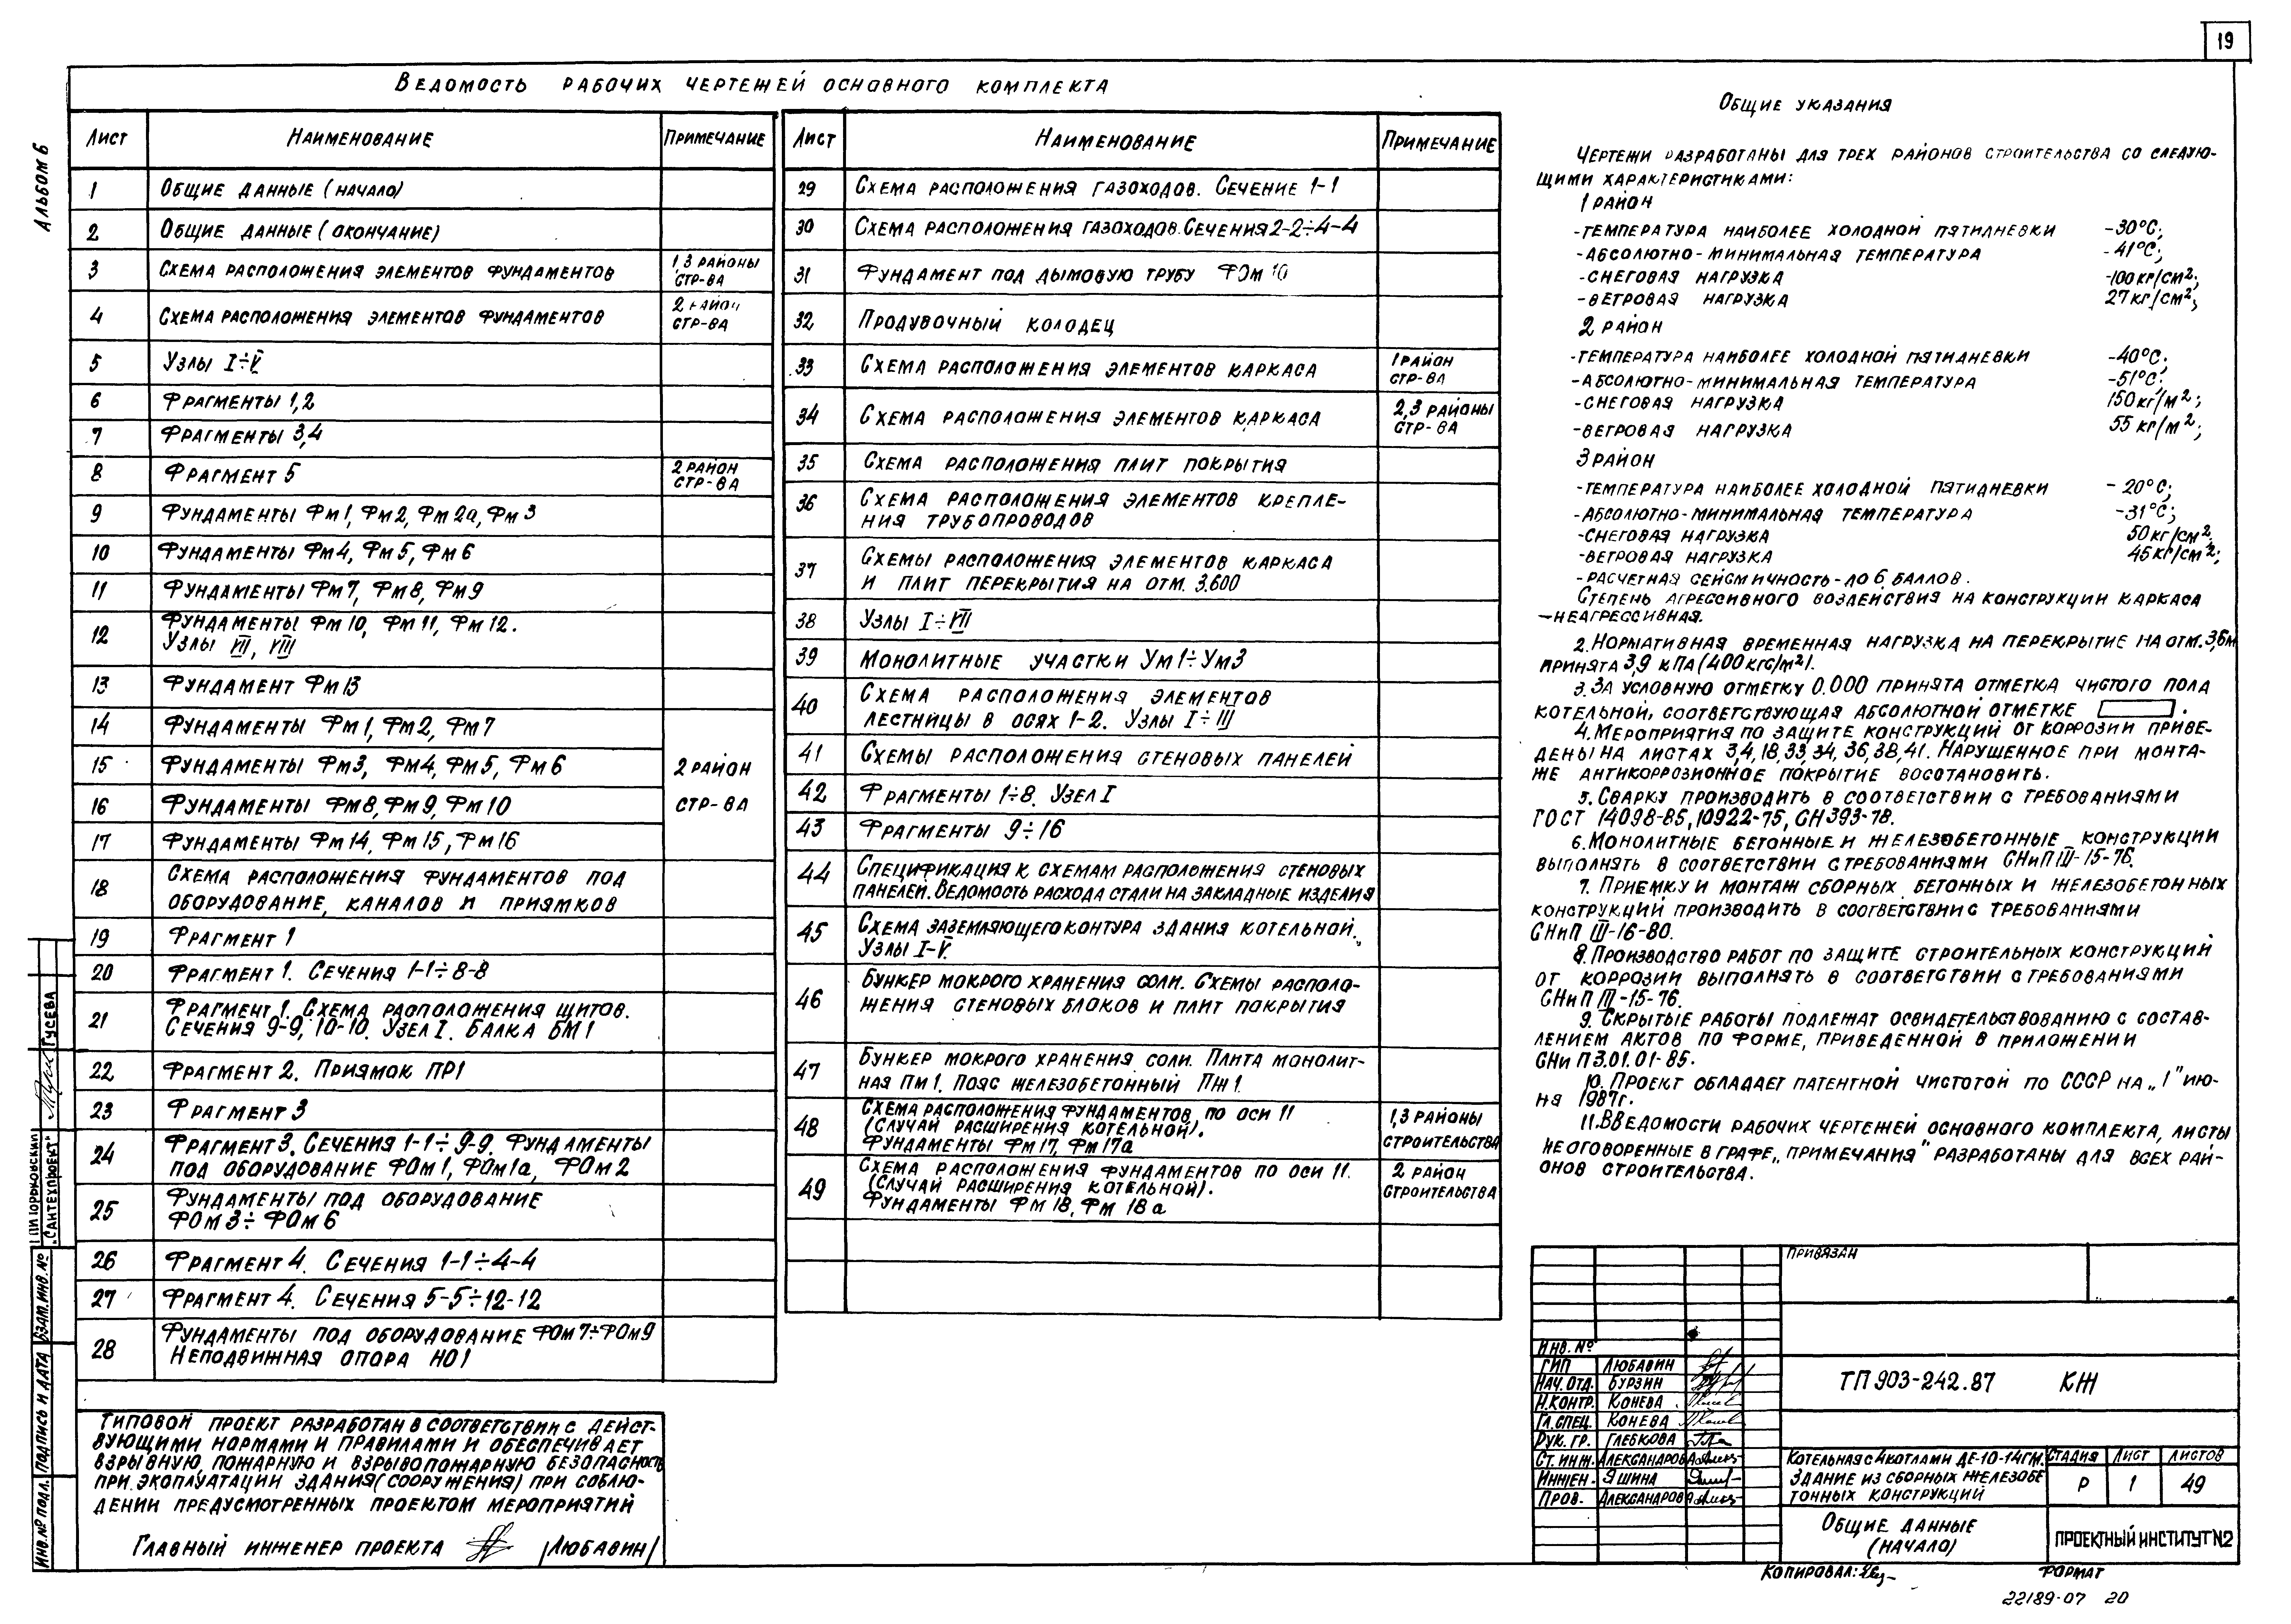 19
Альбом 6
Ведомость рабочих чертежей основного комплекта
Лист Наименование Примечание
1 Общие данные (начало)
2 Общие данные (окончание)
3 Схема расположения элементов фундаментов 1,3 районы стр-ва
4 Схема расположения элементов фундаментов 2 район стр-ва
5 Узлы I÷V
6 Фрагменты 1,2
7 Фрагменты 3,4
8 Фрагмент 5 2 район стр-ва
9 Фундаменты Фм1, Фм2, Фм2а, Фм3
10 Фундаменты Фм4, Фм5, Фм6
11 Фундаменты Фм7, Фм8, Фм9
12 Фундаменты Фм10, Фм11, Фм12.
Узлы VII, VIII
13 Фундамент Фм13
14 Фундаменты Фм1, Фм2, Фм7
15 Фундаменты Фм3, Фм4, Фм5, Фм6 2 район
16 Фундаменты Фм8, Фм9, Фм10 стр-ва
17 Фундаменты Фм14, Фм15, Фм16
18 Схема расположения фундаментов под
оборудование, каналов и приямков
19 Фрагмент 1
20 Фрагмент 1. Сечения 1-1÷8-8
21 Фрагмент 1. Схема расположения щитов.
Сечения 9-9, 10-10. Узел I. Балка БМ1
22 Фрагмент 2. Приямок ПР1
23 Фрагмент 3
24 Фрагмент 3. Сечения 1-1÷9-9. Фундаменты
под оборудование ФОм1, ФОм1а, ФОм2
25 Фундаменты под оборудование
ФОм3÷ФОм6
26 Фрагмент 4. Сечения 1-1÷4-4
27 Фрагмент 4. Сечения 5-5÷12-12
28 Фундаменты под оборудование ФОм7÷ФОм9
Неподвижная опора НО1
Лист Наименование Примечание
29 Схема расположения газоходов. Сечение 1-1
30 Схема расположения газоходов. Сечения 2-2÷4-4
31 Фундамент под дымовую трубу ФОм10
32 Продувочный колодец
33 Схема расположения элементов каркаса 1 район стр-ва
34 Схема расположения элементов каркаса 2,3 районы стр-ва
35 Схема расположения плит покрытия
36 Схема расположения элементов крепле-
ния трубопроводов
37 Схемы расположения элементов каркаса
и плит перекрытия на отм. 3.600
38 Узлы I÷VII
39 Монолитные участки Ум1÷Ум3
40 Схема расположения элементов
лестницы в осях 1-2. Узлы I÷III
41 Схемы расположения стеновых панелей
42 Фрагменты 1÷8. Узел I
43 Фрагменты 9÷16
44 Спецификация к схемам расположения стеновых
панелей. Ведомость расхода стали на закладные изделия
45 Схема заземляющего контура здания котельной.
Узлы I-V.
46 Бункер мокрого хранения соли. Схемы располо-
жения стеновых блоков и плит покрытия
47 Бункер мокрого хранения соли. Плита монолит-
ная Пм1. Пояс железобетонный Пж1.
48 Схема расположения фундаментов по оси 11 1,3 районы
(Случай расширения котельной). строительства
Фундаменты Фм17, Фм17а
49 Схема расположения фундаментов по оси 11. 2 район
(Случай расширения котельной). строительства
Фундаменты Фм18, Фм18а
Общие указания
Чертежи разработаны для трех районов строительства со следую-
щими характеристиками:
1 район
-температура наиболее холодной пятидневки -30°С;
-абсолютно-минимальная температура -41°С;
-снеговая нагрузка -100кг/см²;
-ветровая нагрузка 27кг/см²;
2 район
-температура наиболее холодной пятидневки -40°С;
-абсолютно-минимальная температура -51°С;
-снеговая нагрузка 150кг/м²;
-ветровая нагрузка 55кг/м²;
3 район
-температура наиболее холодной пятидневки -20°С;
-абсолютно-минимальная температура -31°С;
-снеговая нагрузка 50кг/см²
-ветровая нагрузка 45кг/см²;
-расчетная сейсмичность-до 6 баллов.
Степень агрессивного воздействия на конструкции каркаса
-неагрессивная.
2. Нормативная временная нагрузка на перекрытие на отм. 3,6м
принята 3,9 кПа (400кгс/м²).
3. За условную отметку 0.000 принята отметка чистого пола
котельной, соответствующая абсолютной отметке .
4. Мероприятия по защите конструкций от коррозии приве-
дены на листах 3,4,18,33,34,36,38,41. Нарушенное при монта-
же антикоррозионное покрытие восстановить.
5. Сварку производить в соответствии с требованиями
ГОСТ 14098-85, 10922-75, СН 393-78.
6. Монолитные бетонные и железобетонные конструкции
выполнять в соответствии с требованиями СНиП III-15-76.
7. Приемку и монтаж сборных бетонных и железобетонных
конструкций производить в соответствии с требованиями
СНиП III-16-80.
8. Производство работ по защите строительных конструкций
от коррозии выполнять в соответствии с требованиями
СНиП III-15-76.
9. Скрытые работы подлежат освидетельствованию с состав-
лением актов по форме, приведенной в приложении
СНиП 3.01.01-85.
10. Проект обладает патентной чистотой по СССР на „1" ию-
ня 1987г.
11. В ведомости рабочих чертежей основного комплекта, листы
не оговоренные в графе „примечания" разработаны для всех рай-
онов строительства.
Типовой проект разработан в соответствии с дейст-
вующими нормами и правилами и обеспечивает
взрывную, пожарную и взрывопожарную безопасность
при эксплуатации здания (сооружения) при соблю-
дении предусмотренных проектом мероприятий
Главный инженер проекта /Любавин/
Гусева
"Сантехпроект"
Взам. инв. №
Подпись и дата
Инв. № подл.
Привязан
Инв. №
ГИП Любавин
Нач. отд. Бурзин
Н.контр. Конева
Гл.спец. Конева
Рук. гр. Глебкова
Ст. инж. Александрова
Инжен. Яшина
Пров. Александрова
ТП 903-242.87 КЖ
Котельная с 4 котлами ДЕ-10-14ГМ.
Здание из сборных железобе
тонных конструкций
Стадия Лист Листов
Р 1 49
Общие данные
(начало)
Проектный институт N2
Копировал: Формат
22189-07 20